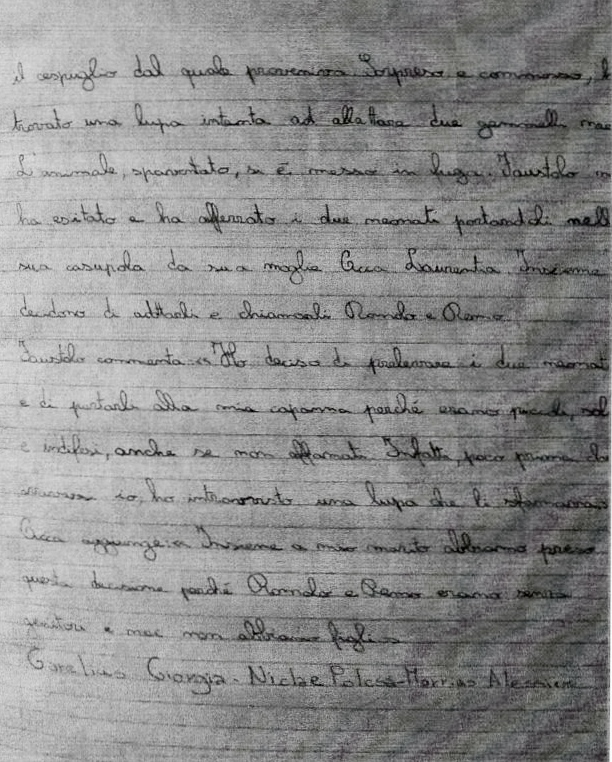 il cespuglio dal quale proveniva. Sorpreso e commosso, h
trovato una lupa intenta ad allattare due gemelli
L'animale, spaventato, si è messo in fuga. Faustolo n
ha esitato e ha afferrato i due neonati portandoli nell
sua casupola da sua moglie Acca Laurentia. Insieme
decidono di adottarli e chiamarli Romolo e Remo.
Faustolo commenta: «Ho deciso di prelevare i due neonat
e di portarli alla mia capanna perché erano piccoli, sol
e indifesi, anche se non affamati. Infatti, poco prima
io, ho intravvisto una lupa che li sfamava»
Acca aggiunge: «Insieme a mio marito abbiamo preso
questa decisione perché Romolo e Remo erano senza
genitori e noi non abbiamo figli»
Giorgia - Niclae -